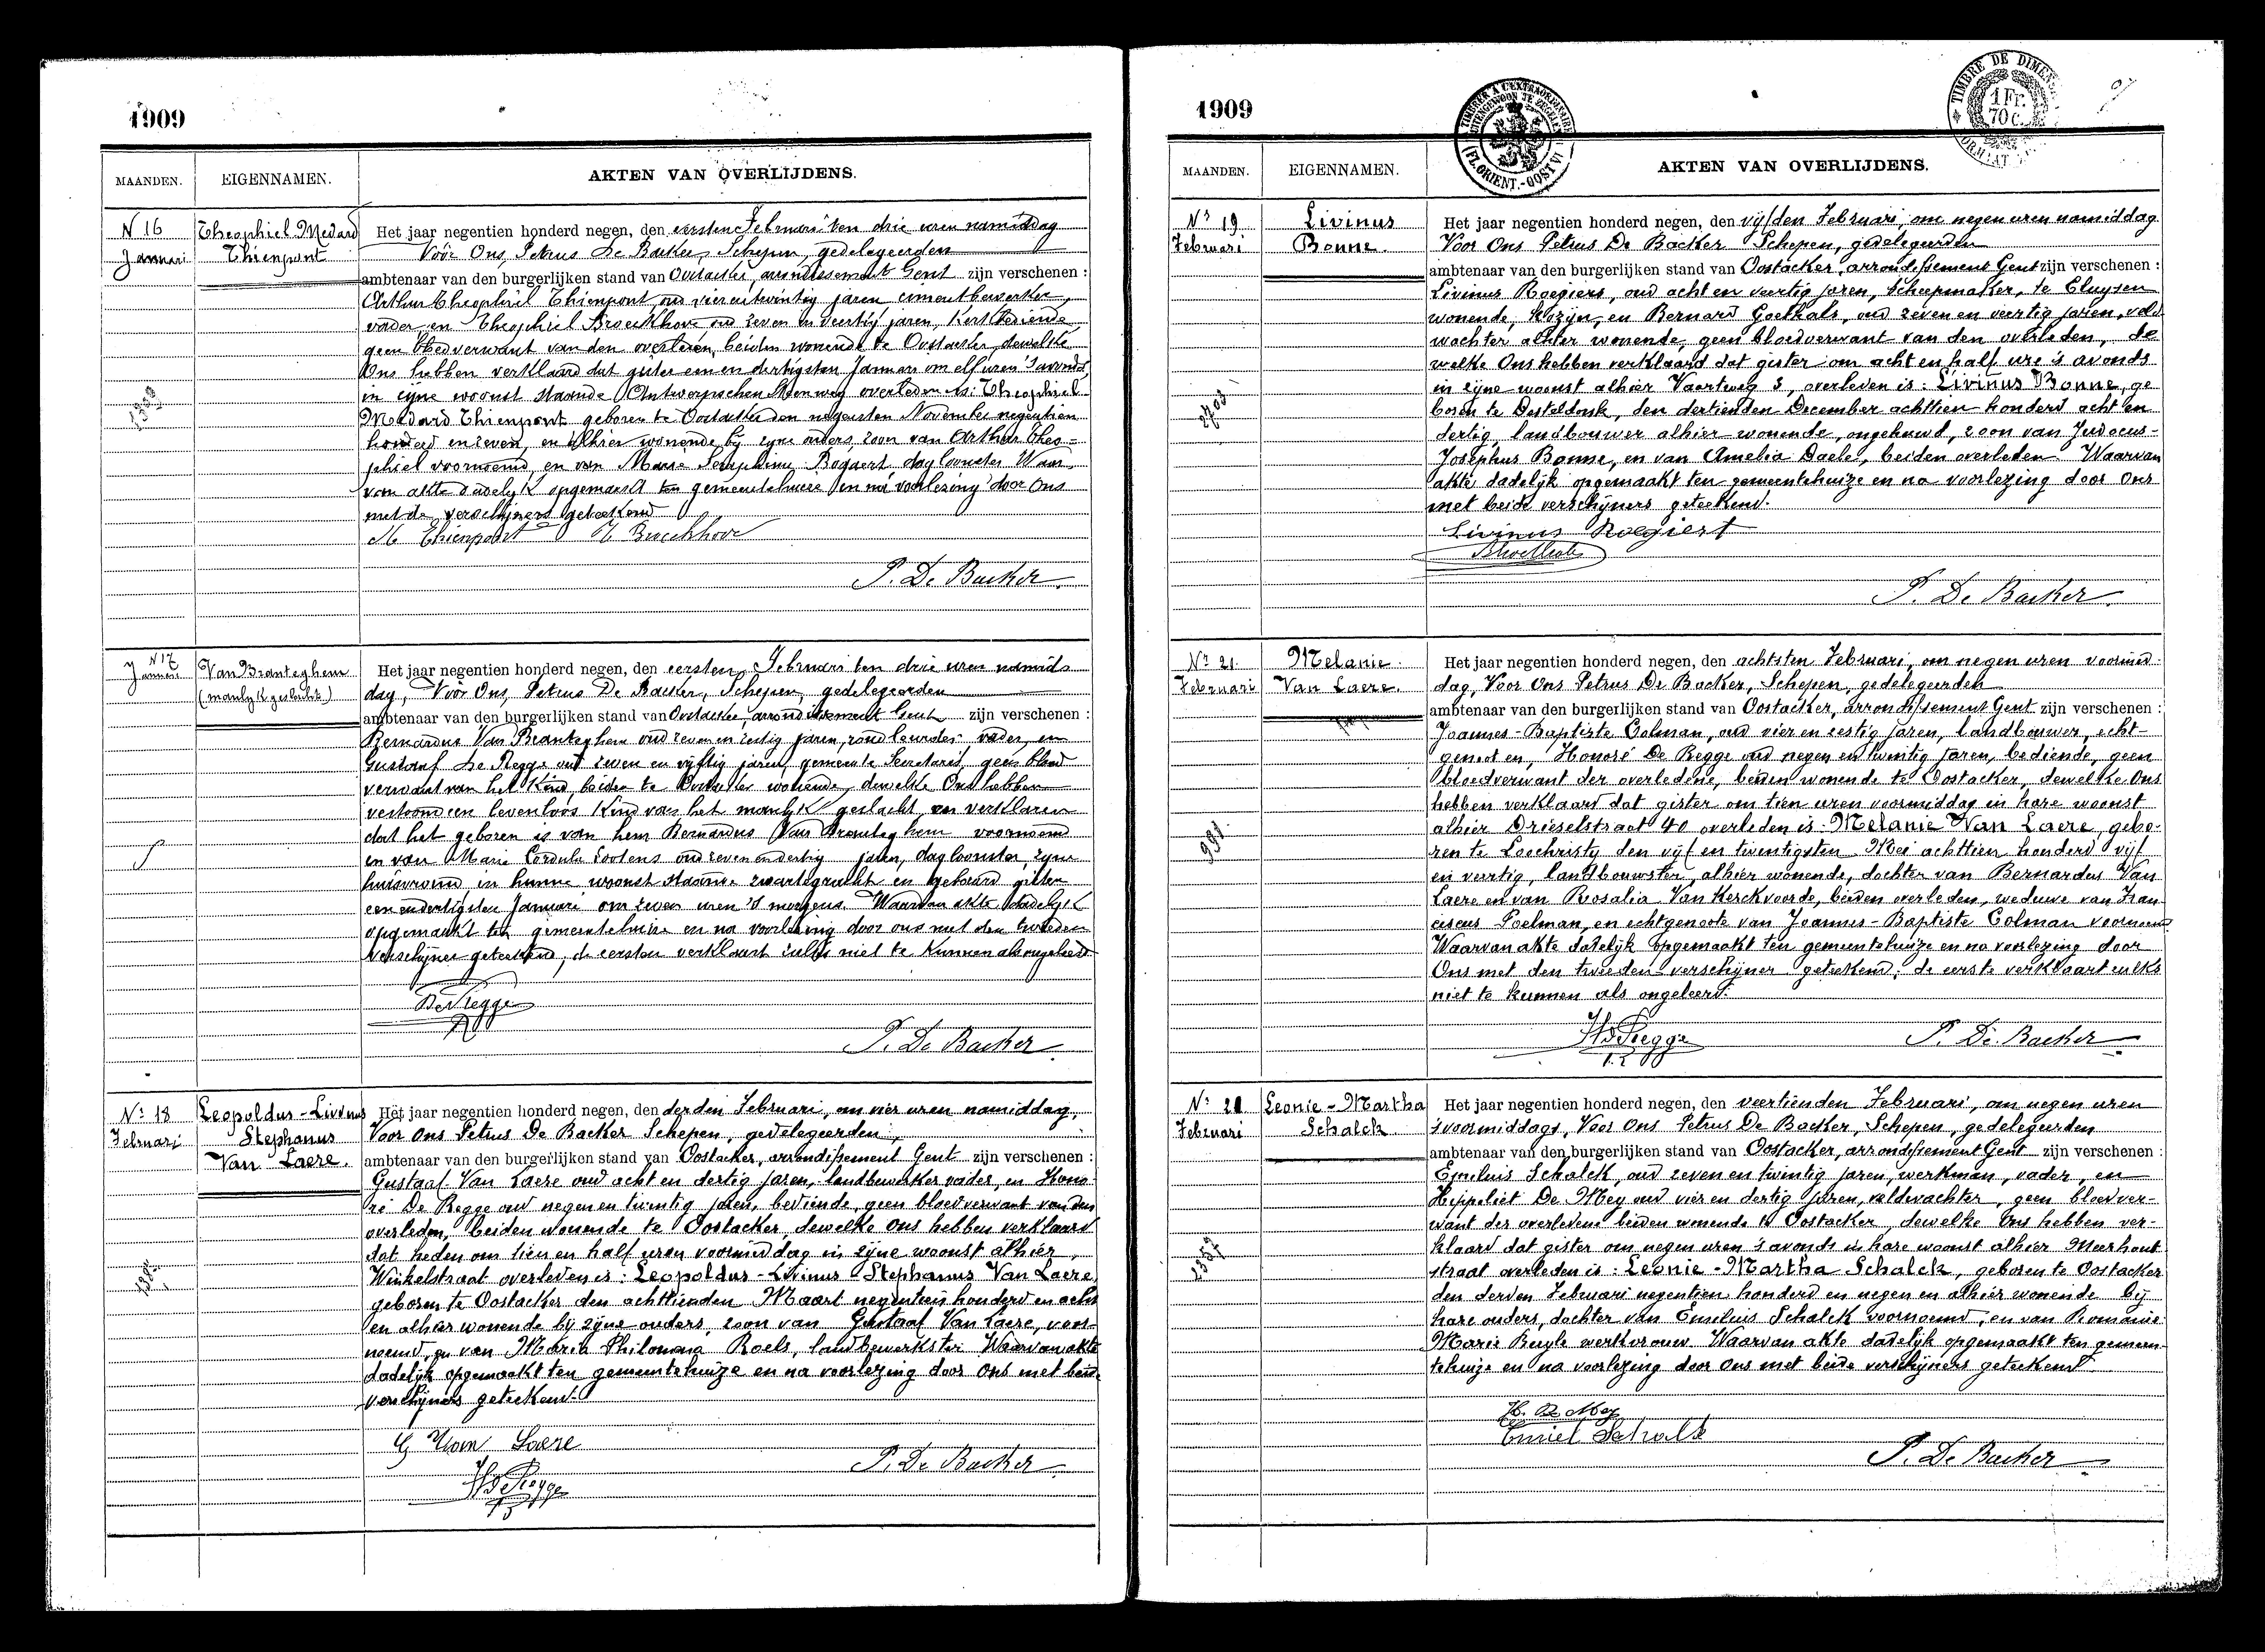 1909
MAANDEN. EIGENNAMEN. AKTEN VAN OVERLIJDENS.
N 16 Januari
Theophiel Medard Thienpont
Het jaar negentien honderd negen, den eersten Februari ten drie uren namiddag
Vóór Ons, Petrus De Backer, Schepen, gedelegeerden
ambtenaar van den burgerlijken stand van Oostacker, arrondissement Gent zijn verschenen :
Arthur Theophiel Thienpont, oud vierentwintig jaren cimentbewerker,
vader en Theophiel Broeckhove oud zeven en veertig jaren, Kerkbediende
geen bloedverwant van den overleden, beiden wonende te Oostacker, dewelke
Ons hebben verklaard dat gister een en dertigsten Januari om elf uren 's avonds,
in zijne woonst staande Antwerpschen Steenweg overleden is: Theophiel
Medard Thienpont geboren te Oostacker den negensten November negentien
honderd en zeven, en alhier wonende bij zijne ouders, zoon van Arthur Theo=
phiel voornoemd, en van Marie Seraphine Bogaert, dagloonster. Waar
van akte dadelijk opgemaakt ten gemeentehuize en na voorlezing door Ons
met de verschijners geteekend
Thienpont Broeckhove
P. De Backer
N 17 Januari
Van Branteghem
(manlijk geslacht.)
Het jaar negentien honderd negen, den eersten Februari ten drie uren namid=
dag, Vóór Ons, Petrus De Backer, Schepen, gedelegeerden
ambtenaar van den burgerlijken stand van Oostacker, arrondissement Gent zijn verschenen :
Bernardus Van Branteghem oud zeven en jaren, vader, en
Gustaaf De Regge oud zeven en vijftig jaren, gemeente Secretaris, geen bloed
verwant van het Kind, beiden te Oostacker wonende, dewelke Ons hebben
vertoond een levenloos Kind van het manlijk geslacht, en verklaren
dat het geboren is van hem Bernardus Van Branteghem voornoemd
en van Marie Cordula Lootens oud zeven en dertig jaren, dagloonster, zijne
huisvrouw, in hunne woonst staande en gebaard gister
een en dertigsten Januari om zeven uren 's morgens. Waarvan akte dadelijk
opgemaakt ten gemeentehuize en na voorlezing door ons met den tweeden
verschijner geteekend, de eersten verklaart zulks niet te Kunnen als ongeleerd
De Regge
P. De Backer
Nr 18 Februari
Leopoldus-Livinus Stephanus Van Laere.
Het jaar negentien honderd negen, den derden Februari, om vier uren namiddag,
Voor Ons Petrus De Backer Schepen, gedelegeerden
ambtenaar van den burgerlijken stand van Oostacker, arrondissement Gent zijn verschenen :
Gustaaf Van Laere oud acht en dertig jaren, landbewerker vader, en Hono
ré De Regge oud negen en twintig jaren, bediende, geen bloedverwant van den
overleden, beiden wonende te Oostacker, dewelke Ons hebben verklaard
dat heden om tien en half uren voormiddag in zijne woonst alhier,
Winkelstraat overleden is: Leopoldus-Livinus Stephanus Van Laere,
geboren te Oostacker den achttienden Maart negentien honderd en acht
en alhier wonende bij zijne ouders, zoon van Gustaaf Van Laere, voor-
noemd, en van Maria Philomena Roels, landbewerkster. Waarvan akte
dadelijk opgemaakt ten gemeentehuize en na voorlezing door Ons met beide
verschijners geteekend.
G Van Laere
H De Regge
P. De Backer
1909
TIMBRE A L'EXTRAORDINAIRE
(FL.ORIENT.-OOST VL)
TIMBRE DE DIMENS
1 Fr. 70 c.
MAANDEN. EIGENNAMEN. AKTEN VAN OVERLIJDENS.
Nr 19 Februari
Livinus Bonne.
Het jaar negentien honderd negen, den vijfden Februari, om negen uren namiddag
Voor Ons Petrus De Backer Schepen, gedelegeerden
ambtenaar van den burgerlijken stand van Oostacker, arrondissement Gent zijn verschenen :
Livinus Roegiers, oud acht en veertig jaren, scheepmaker, te Cluysen
wonende, Kozijn, en Bernard Goethals, oud zeven en veertig jaren, veld
wachter alhier wonende, geen bloedverwant van den overleden, de
welke Ons hebben verklaard dat gister om acht en half ure 's avonds
in zijne woonst alhier Vaartweg 3, overleden is: Livinus Bonne, ge
boren te Desteldonk, den dertienden December achttien honderd acht en
dertig, landbouwer alhier wonende, ongehuwd, zoon van Judocus-
Josephus Bonne, en van Amelia Daelel, beiden overleden. Waarvan
akte dadelijk opgemaakt ten gemeentehuize en na voorlezing door Ons
met beide verschijners geteekend.
Livinus Roegiest
P. De Backer
Nr 21. Februari
Melanie Van Laere.
Het jaar negentien honderd negen, den achtsten Februari, om negen uren voormid-
dag, Voor Ons Petrus De Backer, Schepen, gedelegeerden
ambtenaar van den burgerlijken stand van Oostacker, arrondissement Gent zijn verschenen :
Joannes-Baptiste Colman, oud vier en zestig jaren, landbouwer, echt-
genoot en, Honoré De Regge oud negen en twintig jaren, bediende, geen
bloedverwant der overledene, beiden wonende te Oostacker, dewelke Ons
hebben verklaard dat gister om tien uren voormiddag in hare woonst
alhier Drieselstraat 40 overleden is: Melanie Van Laere, gebo-
ren te Loochristy den vijf en twintigsten Mei achttien honderd vijf
en veertig, landbouwster, alhier wonende, dochter van Bernardus Van
Laere en van Rosalia Van Kerckvoorde, beiden overleden, weduwe van Fran
ciscus Poelman, en echtgenoote van Joannes-Baptiste Colman voornoemd
Waarvan akte dadelijk opgemaakt ten gemeentehuize en na voorlezing door
Ons met den tweeden verschijner geteekend, de eerste verklaart zulks
niet te kunnen als ongeleerd.
H De Regge
P. De Backer
Nr Februari
Leonie-Martha Schalck.
Het jaar negentien honderd negen, den veertienden Februari, om negen uren
'svoormiddags, Voor Ons Petrus De Backer, Schepen, gedelegeerden
ambtenaar van den burgerlijken stand van Oostacker, arrondissement Gent zijn verschenen :
Emeluis Schalck, oud zeven en twintig jaren, werkman, vader, en
Hippoliet De Mey oud vier en dertig jaren, veldwachter, geen bloedver-
want der overledene beiden wonende te Oostacker, dewelke Ons hebben ver-
klaard dat gister om negen uren 's avonds in hare woonst alhier Meerhout
straat overleden is: Leonie-Martha Schalck, geboren te Oostacker
den derden Februari negentien honderd en negen en alhier wonende bij
hare ouders, dochter van Emeluis Schalck voornoemd, en van Romanie
Marie Buyle werkvrouw. Waarvan akte dadelijk opgemaakt ten gemeen-
tehuize en na voorlezing door Ons met beide verschijners geteekend.
H. De Mey
Emiel Schalk
P. De Backer